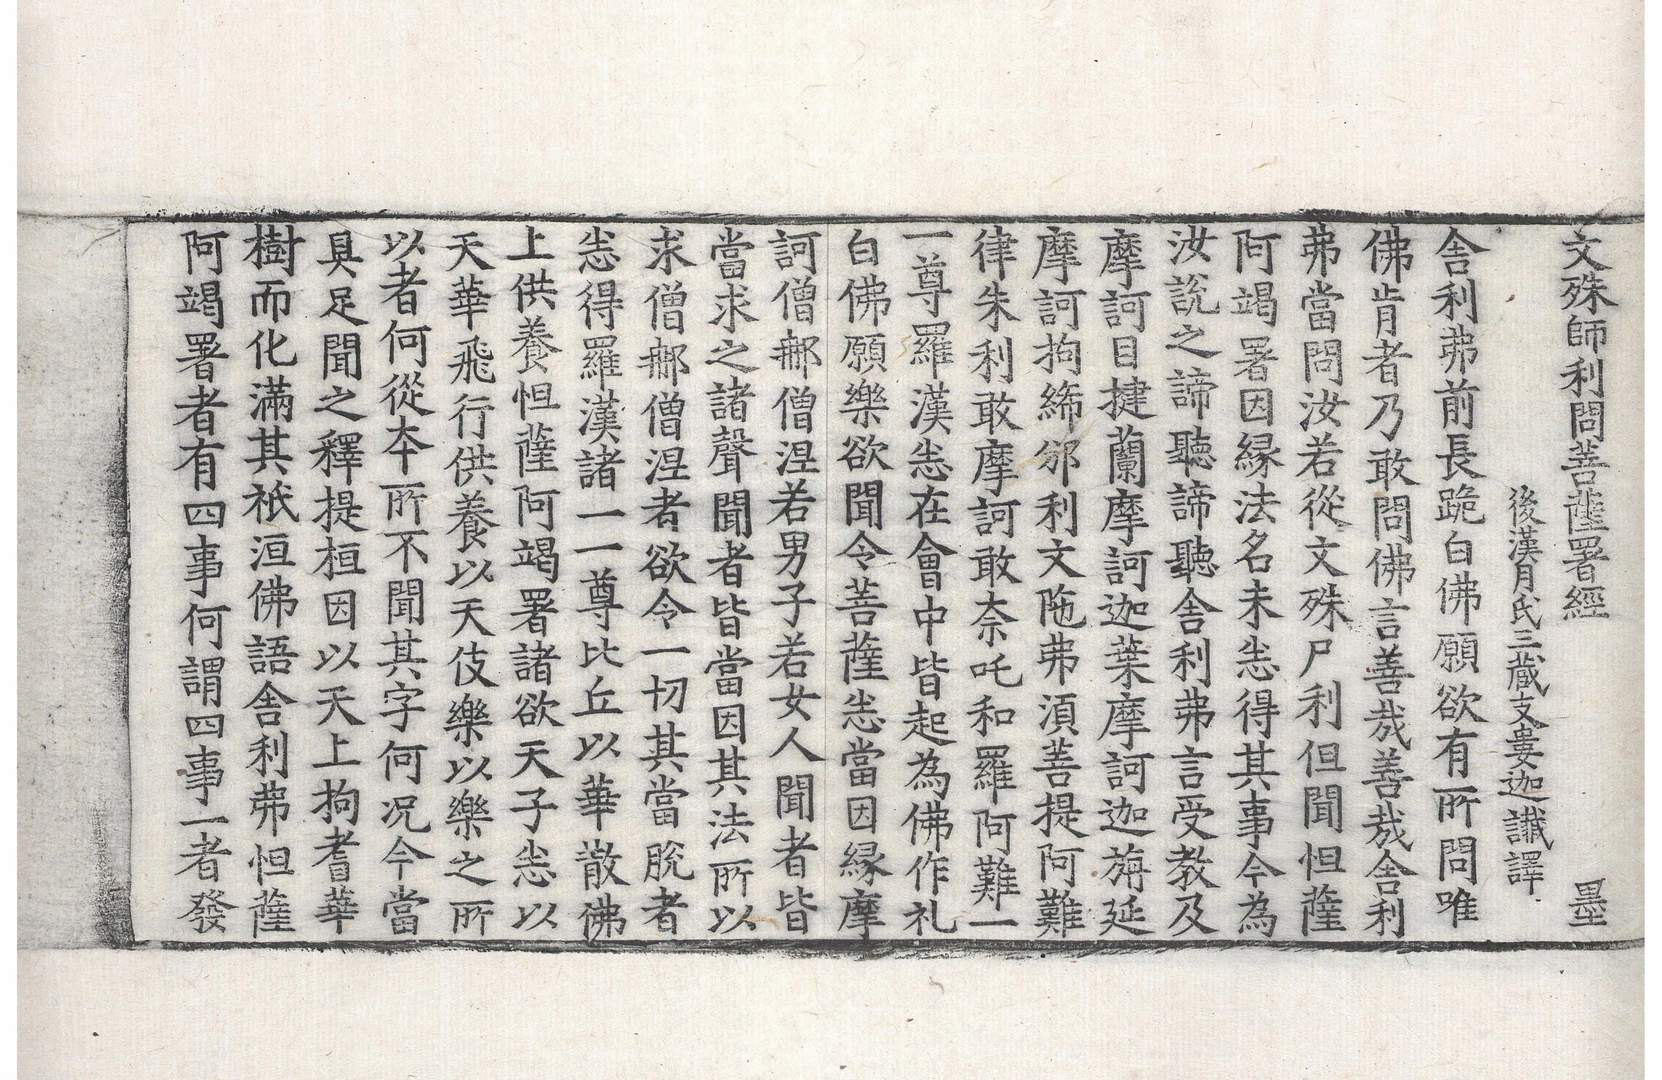 文殊師利問菩薩署經　墨
後漢月氏三藏支婁迦讖譯
舍利弗前長跪白佛願欲有所問唯
佛肯者乃敢問佛言善哉善哉舍利
弗當問汝若從文殊尸利但聞怛薩
阿竭署因緣法名未悉得其事今為
汝說之諦聽諦聽舍利弗言受教及
摩訶目揵蘭摩訶迦葉摩訶迦旃延
摩訶拘絺邠利文陁弗須菩提阿難
律朱利敢摩訶敢奈吒和羅阿難一
一尊羅漢悉在會中皆起為佛作礼
白佛願樂欲聞令菩薩悉當因緣摩
訶僧那僧涅若男子若女人聞者皆
當求之諸聲聞者皆當因其法所以
求僧那僧涅者欲令一切其當脫者
悉得羅漢諸一一尊比丘以華散佛
上供養怛薩阿竭署諸欲天子悉以
天華飛行供養以天伎樂以樂之所
以者何從夲所不聞其字何况今當
具足聞之釋提桓因以天上拘耆華
樹而化滿其祇洹佛語舍利弗怛薩
阿竭署者有四事何謂四事一者發